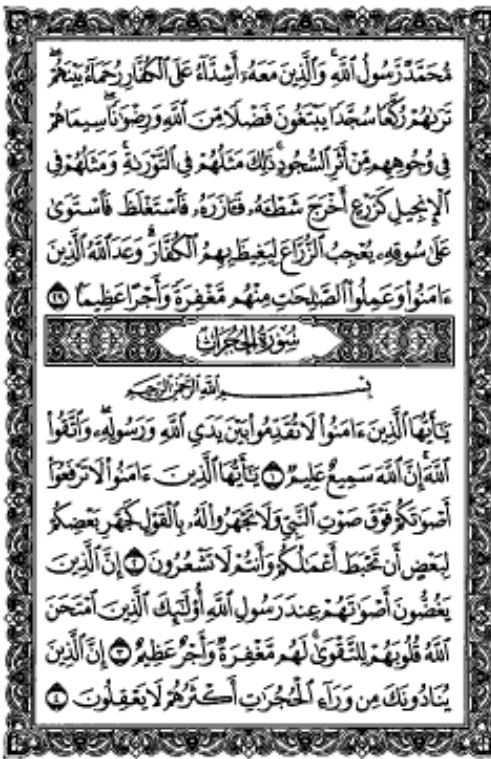 مُّحَمَّدٌ رَّسُولُ ٱللَّهِ ۚ وَٱلَّذِينَ مَعَهُۥٓ أَشِدَّآءُ عَلَى ٱلْكُفَّارِ رُحَمَآءُ بَيْنَهُمْ ۖ
تَرَىٰهُمْ رُكَّعًا سُجَّدًا يَبْتَغُونَ فَضْلًا مِّنَ ٱللَّهِ وَرِضْوَٰنًا ۖ سِيمَاهُمْ
فِى وُجُوهِهِم مِّنْ أَثَرِ ٱلسُّجُودِ ۚ ذَٰلِكَ مَثَلُهُمْ فِى ٱلتَّوْرَىٰةِ ۚ وَمَثَلُهُمْ فِى
ٱلْإِنجِيلِ كَزَرْعٍ أَخْرَجَ شَطْـَٔهُۥ فَـَٔازَرَهُۥ فَٱسْتَغْلَظَ فَٱسْتَوَىٰ
عَلَىٰ سُوقِهِۦ يُعْجِبُ ٱلزُّرَّاعَ لِيَغِيظَ بِهِمُ ٱلْكُفَّارَ ۗ وَعَدَ ٱللَّهُ ٱلَّذِينَ
ءَامَنُوا۟ وَعَمِلُوا۟ ٱلصَّٰلِحَٰتِ مِنْهُم مَّغْفِرَةً وَأَجْرًا عَظِيمًۢا ٢٩
سُورَةُ الحُجُرَاتِ
بِسْمِ ٱللَّهِ ٱلرَّحْمَٰنِ ٱلرَّحِيمِ
يَٰٓأَيُّهَا ٱلَّذِينَ ءَامَنُوا۟ لَا تُقَدِّمُوا۟ بَيْنَ يَدَىِ ٱللَّهِ وَرَسُولِهِۦ ۖ وَٱتَّقُوا۟
ٱللَّهَ ۚ إِنَّ ٱللَّهَ سَمِيعٌ عَلِيمٌ ١ يَٰٓأَيُّهَا ٱلَّذِينَ ءَامَنُوا۟ لَا تَرْفَعُوٓا۟
أَصْوَٰتَكُمْ فَوْقَ صَوْتِ ٱلنَّبِىِّ وَلَا تَجْهَرُوا۟ لَهُۥ بِٱلْقَوْلِ كَجَهْرِ بَعْضِكُمْ
لِبَعْضٍ أَن تَحْبَطَ أَعْمَٰلُكُمْ وَأَنتُمْ لَا تَشْعُرُونَ ٢ إِنَّ ٱلَّذِينَ
يَغُضُّونَ أَصْوَٰتَهُمْ عِندَ رَسُولِ ٱللَّهِ أُو۟لَٰٓئِكَ ٱلَّذِينَ ٱمْتَحَنَ
ٱللَّهُ قُلُوبَهُمْ لِلتَّقْوَىٰ ۚ لَهُم مَّغْفِرَةٌ وَأَجْرٌ عَظِيمٌ ٣ إِنَّ ٱلَّذِينَ
يُنَادُونَكَ مِن وَرَآءِ ٱلْحُجُرَٰتِ أَكْثَرُهُمْ لَا يَعْقِلُونَ ٤